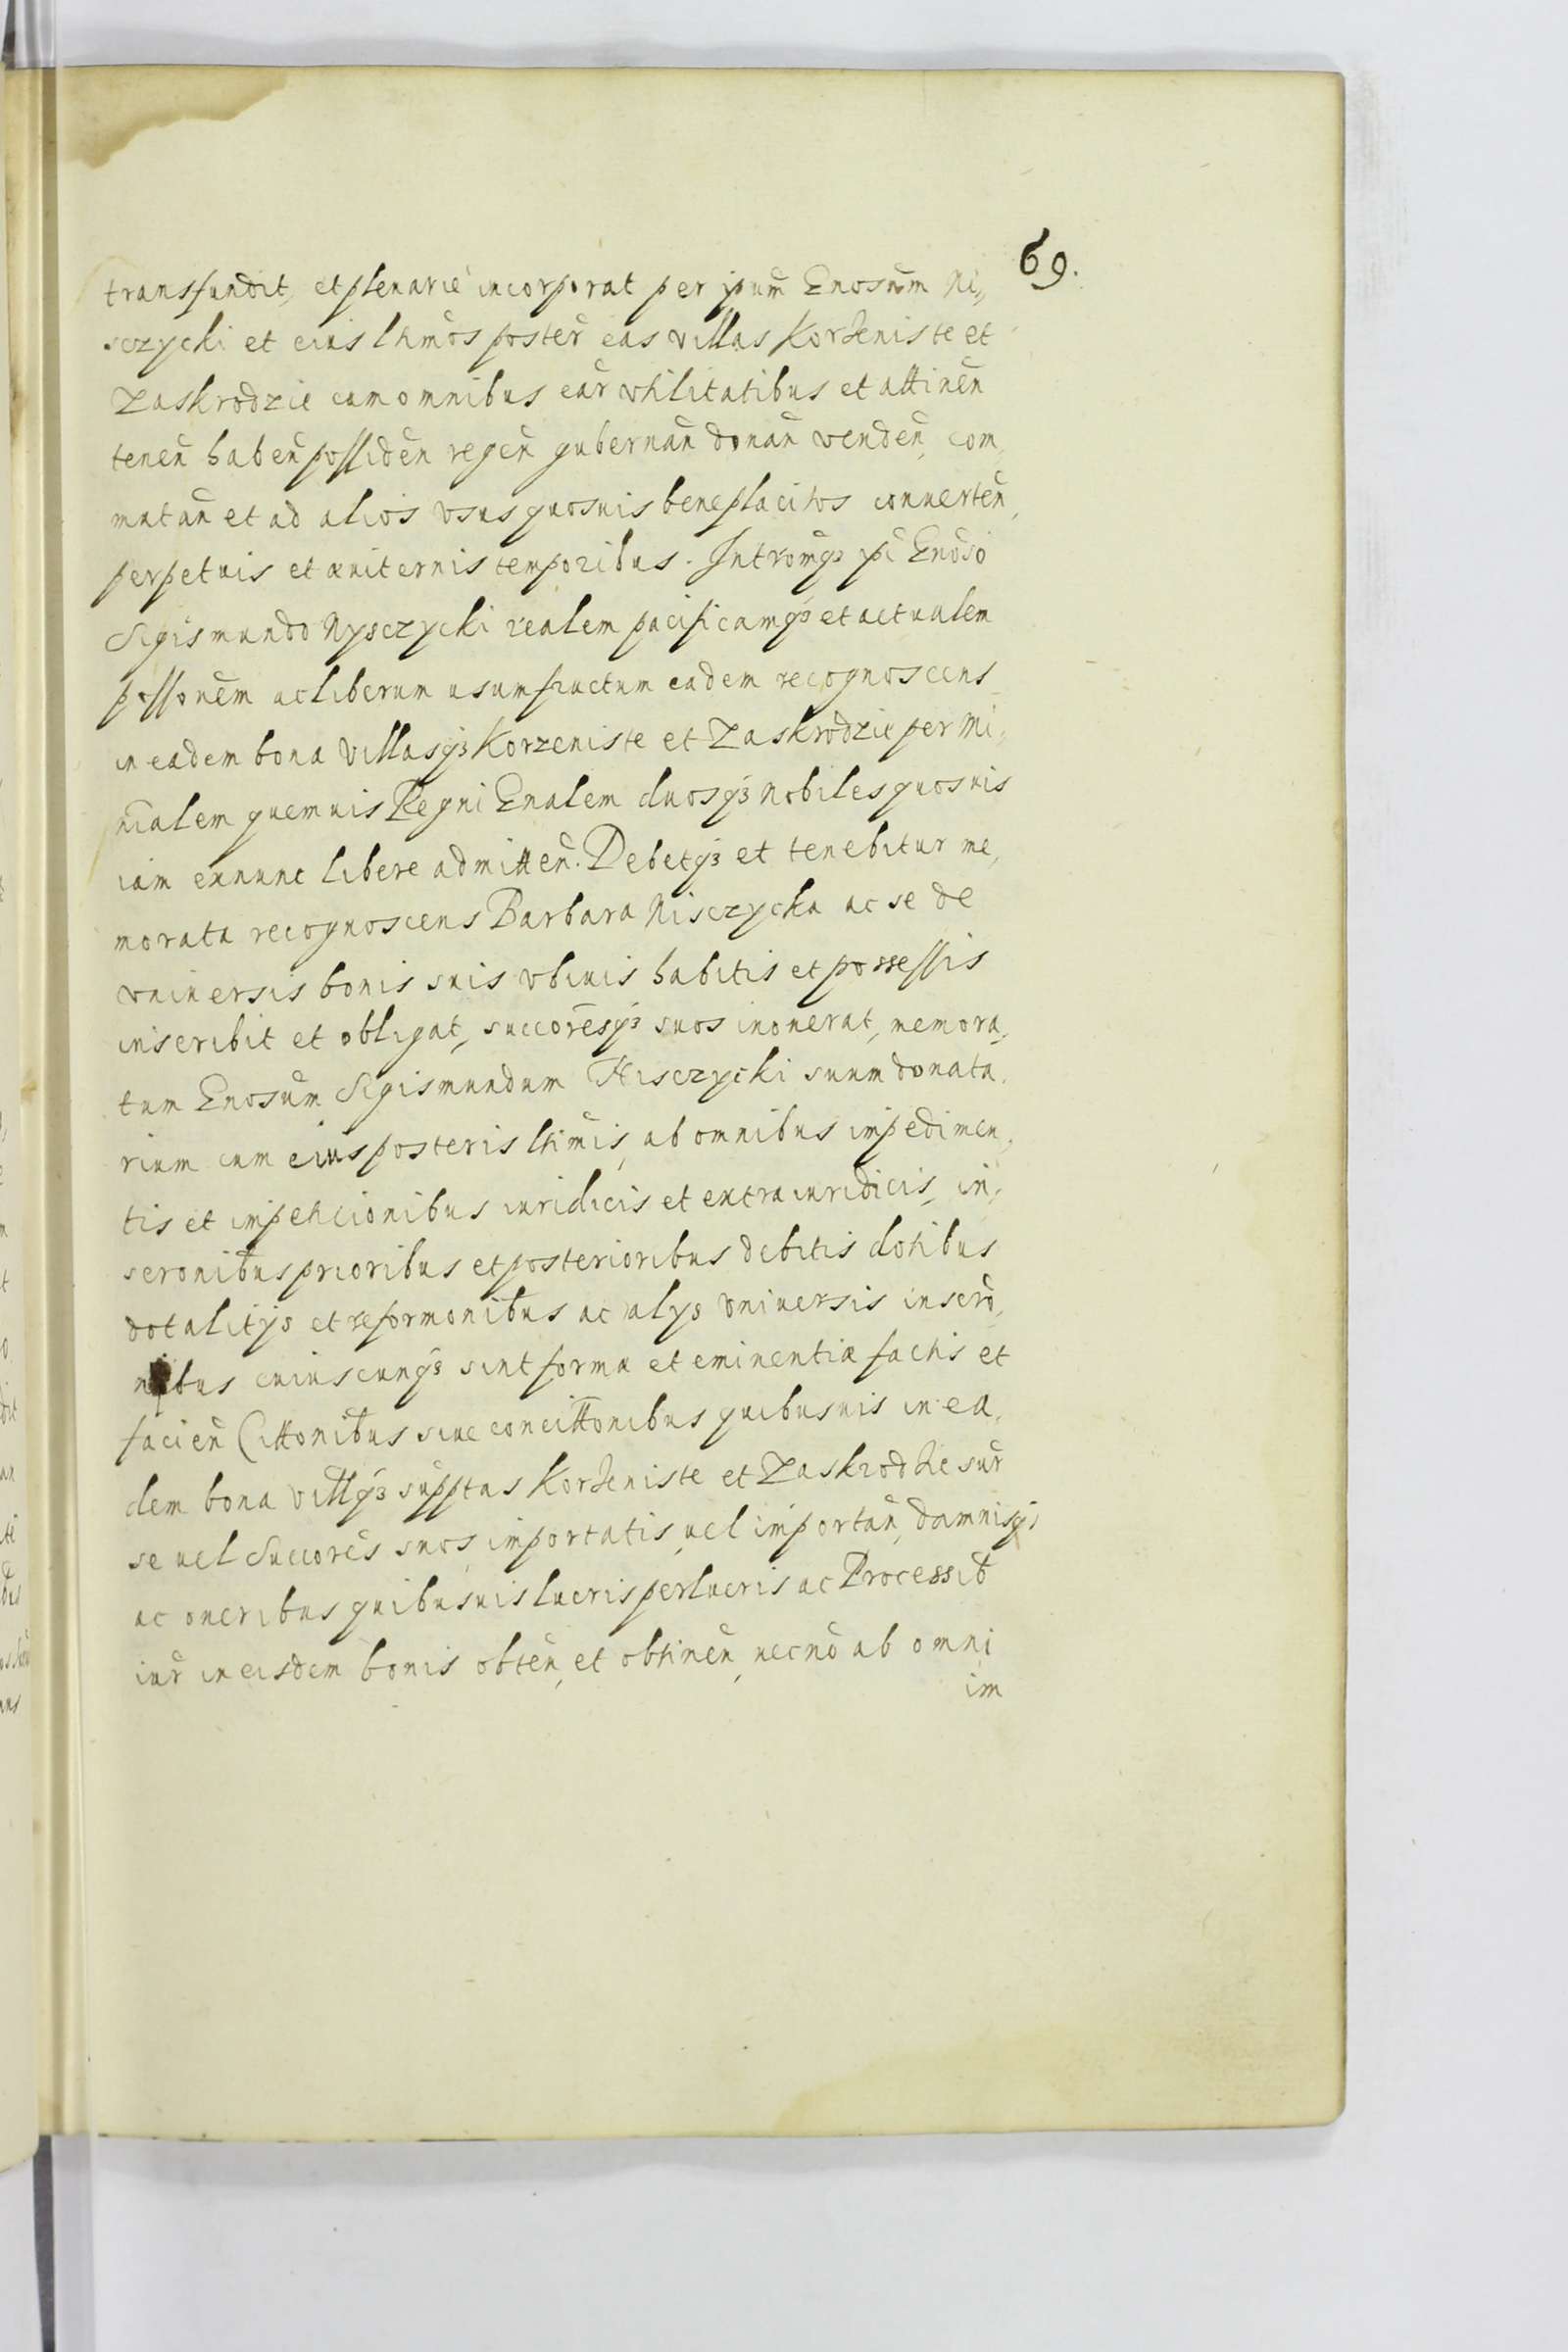 69.
transfundit, et plenarie incorporat per ipum̃ Gnosum Ni,,
sczycki et eius ltimos poster̃ eas villas Korzeniste et
Zaskrodzie cum omnibus ear̃ vtilitatibus et attinen̄
tenen̄ haben̄ possiden̄ regen̄ gubernan̄ donan̄ venden̄, com,
mutan̄ et ad alios vsus quosuis beneplacitos conuerten̄,
perpetuis et æuiternis temporibus. Introm̃qз ipi Gnoso
Sigismundo Nysczycki realem pacificamqз et actualem
possonem ac liberum usumfructum eadem recognoscens
in eadem bona villasqз Korzeniste et Zaskrodzie per Mi,
nialem quemuis Regni Gnalem duosqз nobiles quosuis
iam exnunc libere admitten̄. Debetqз et tenebitur me,
morata recognoscens Barbara Nisczycka ac se de
vniuersis bonis suis vbiuis habitis et possessis
inscribit et obligat, succoresqз suos inonerat, memora,
tum Gnosum Sigismundum Nisczycki suum donata,
rium cum eius posteris ltimis, ab omnibus impedimen,
tis et impeticionibus iuridicis et extraiuridicis, in,
scronibus prioribus et posterioribus debitis dotibus
dotalitys et reformonibus ac alys vniuersis inscro,
nibus cuiuscunqз sint formæ et eminentiæ factis et
facien̄ Cittonibus siue concittonibus quibusuis in ea,
dem bona villqз supptas Korzeniste et Zaskrodzie sur̃
se uel Succores suos, importatis, uel importan̄, damnisqз
ac oneribus quibusuis lucris perlucris ac Processib
iur̃ in eisdem bonis obten̄, et obtinen̄, necno ab omni
im